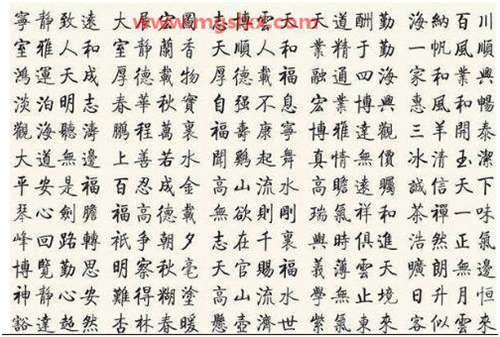 寧靜致遠 大展宏圖 志博雲天 天道酬勤 海納百川
www.mgslxx.com
室雅人和 室靜蘭香 天順人和 業精于勤 一帆風順
鴻運天成 厚德載物 厚德載福 融通四海 和業興
淡泊明志 春華秋實 自强不息 宏業興家 惠風和暢
觀海聽濤 鵬程萬裏 福壽康寧 博雅達觀 三羊開泰
大道無邊 上善若水 聞鷄起舞 真情無價 冰清玉潔
平安是福 百忍成金 高山流水 高瞻遠矚 誠信天下
琴心劍膽 福高德載 無欲則剛 瑞氣祥和 茶禪一味
峰回路轉 祇爭朝夕 志在千裏 與時俱進 浩然正氣
博覽勤思 明察秋毫 天官賜福 義薄雲天 曠朗無邊
神靜心安 難得糊塗 高山流水 學無止境 日升月恒
豁達超然 杏林春暖 懸壺濟世 紫氣東來 客似雲來